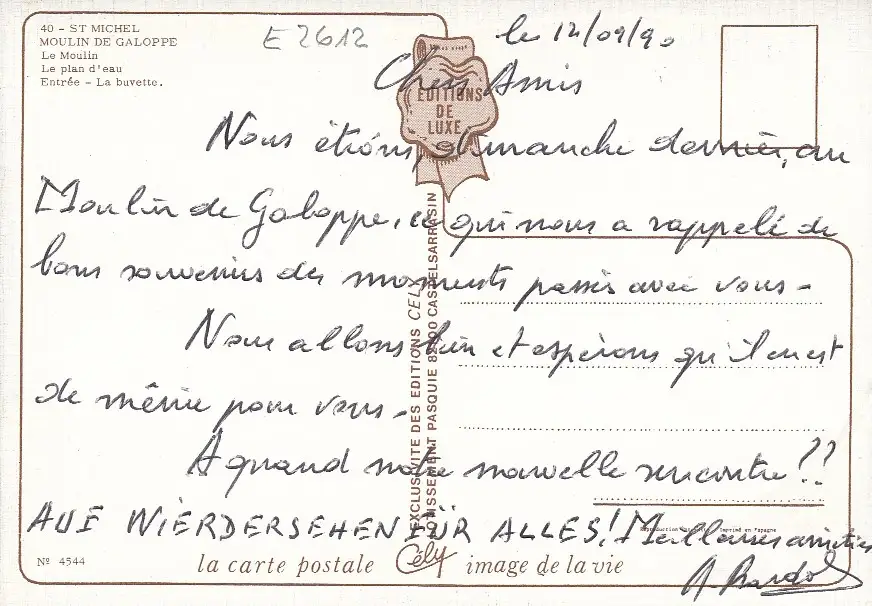 40 - ST MICHEL
MOULIN DE GALOPPE
Le Moulin
Le plan d'eau
Entrée - La buvette.
E 2612
le 12/09/90
Chers Amis
EDITIONS
DE
LUXE
Nous étions, dimanche dernier, au
Moulin de Galoppe, ce qui nous a rappelé de
bons souvenirs des moments passés avec vous -
Nous allons bien et espérons qu'il en est
de même pour vous -
A quand notre nouvelle rencontre !!
AUF WIERDERSEHEN FÜR ALLES! Meilleures amitiés
EXCLUSIVITE DES EDITIONS CELY
LOTISSEMENT PASQUIE 82100 CASTELSARRASIN
Imprimé en Espagne
Nº 4544
la carte postale Cély image de la vie